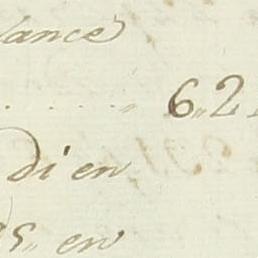 lance
6,,2
di en
s,, en